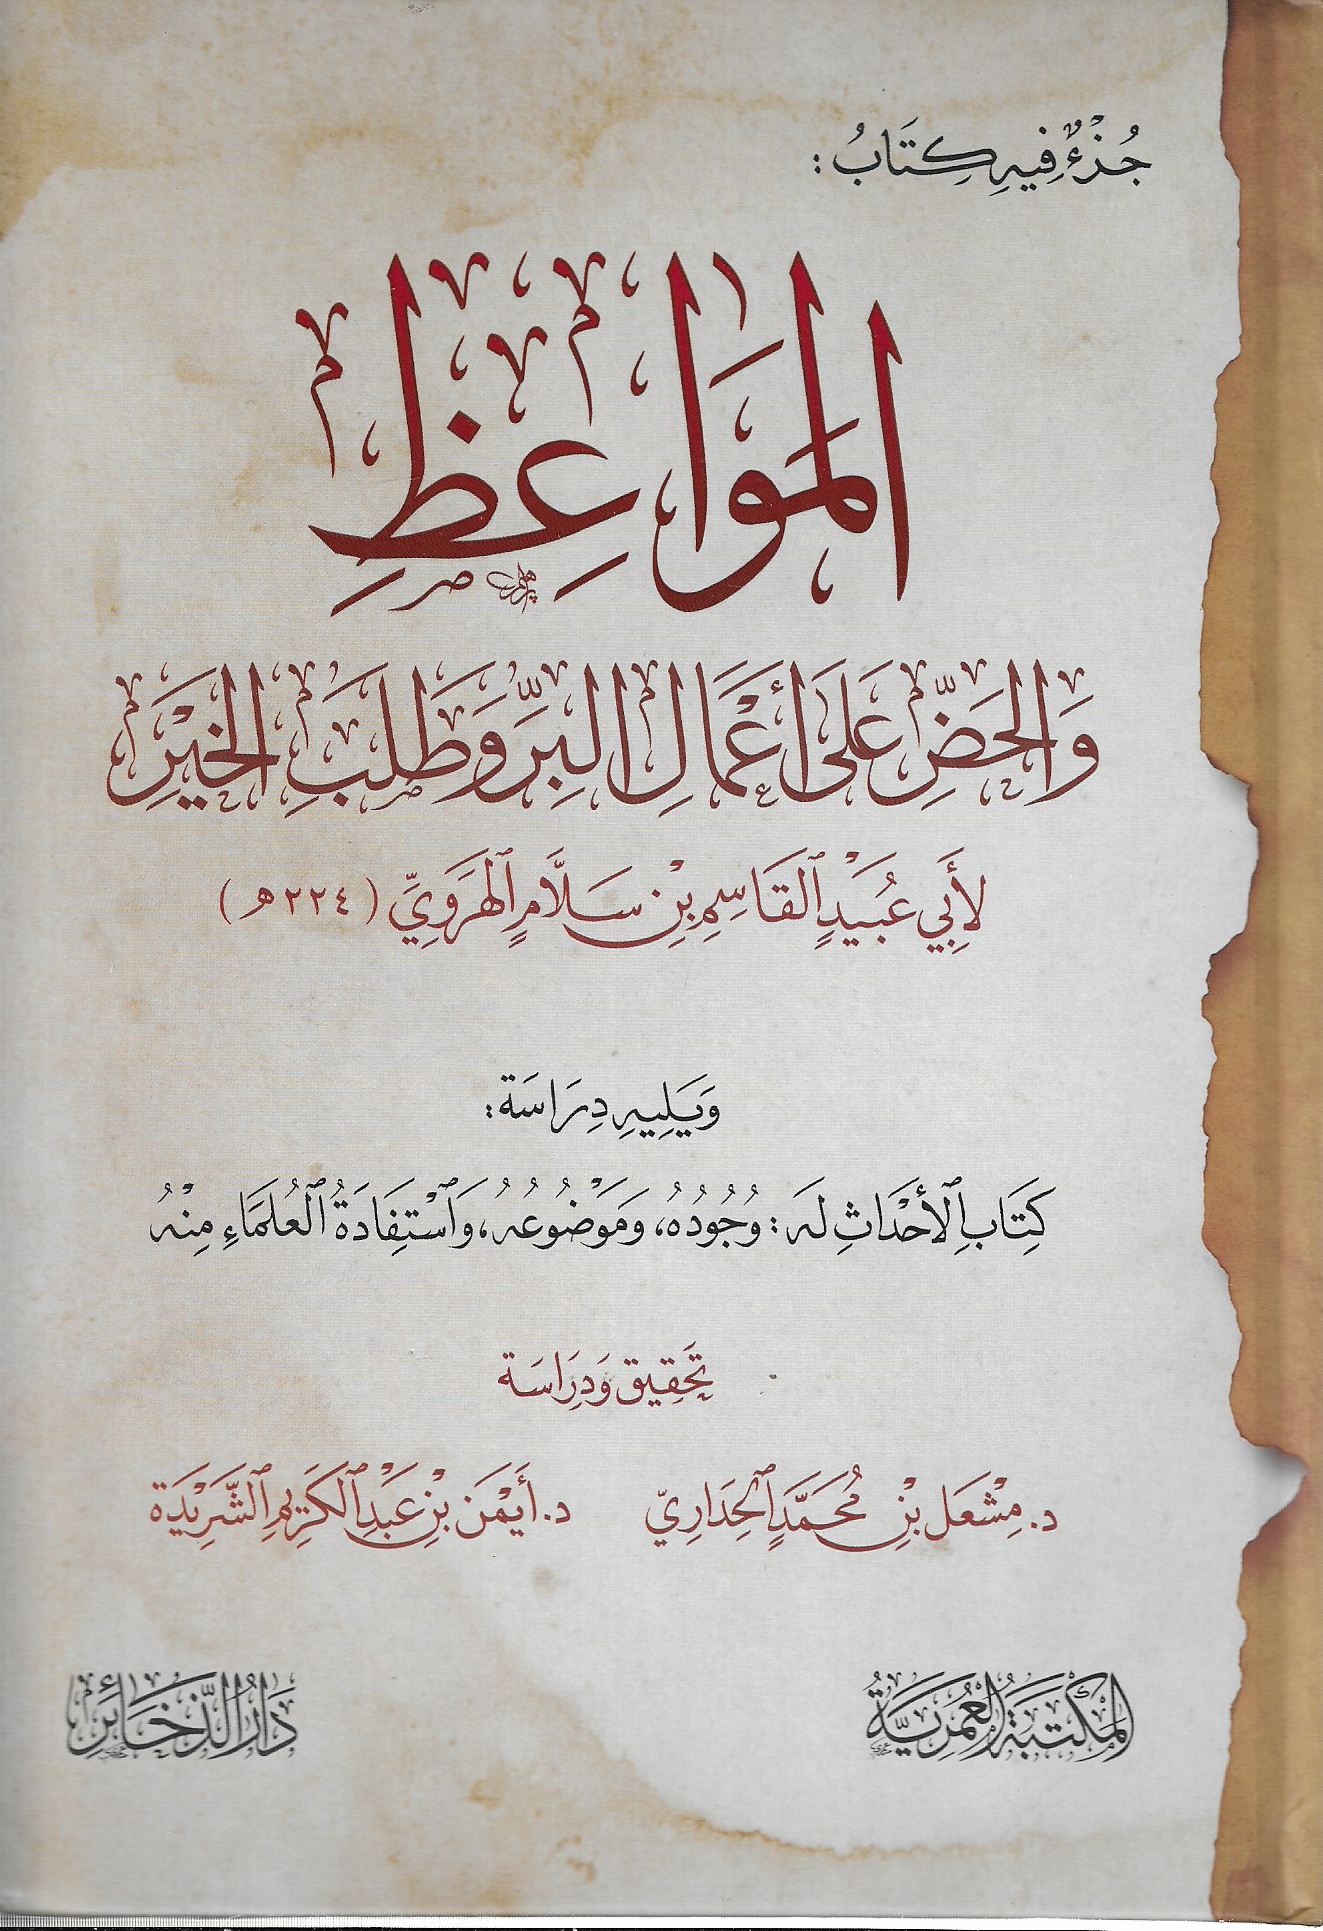 جُزْءٌ فِيهِ كِتَابُ :
المَوَاعِظِ
وَالحَضِّ عَلَى أَعْمَالِ البِرِّ وَطَلَبِ الخَيْرِ
لأَبِي عُبَيْدٍ ٱلقَاسِمِ بْنِ سَلَّامٍ ٱلهَرَوِيِّ ( ٢٢٤ هـ )
وَيَلِيهِ دِرَاسَة :
كِتَابِ ٱلأَحْدَاثِ لَهُ : وُجُودُهُ، وَمَوْضُوعُهُ، وَٱسْتِفَادَةُ ٱلعُلَمَاءِ مِنْهُ
تَحقِيق وَدِرَاسَة
د. مِشْعَل بْنِ مُحَمَّدٍ ٱلحِدَارِيّ د. أَيْمَن بْنِ عَبْدِ ٱلكَرِيمِ ٱلشَّرِيدَة
المَكْتَبَةُ العُمَرِيَّةُ دَارُ الذَّخَائِرِ